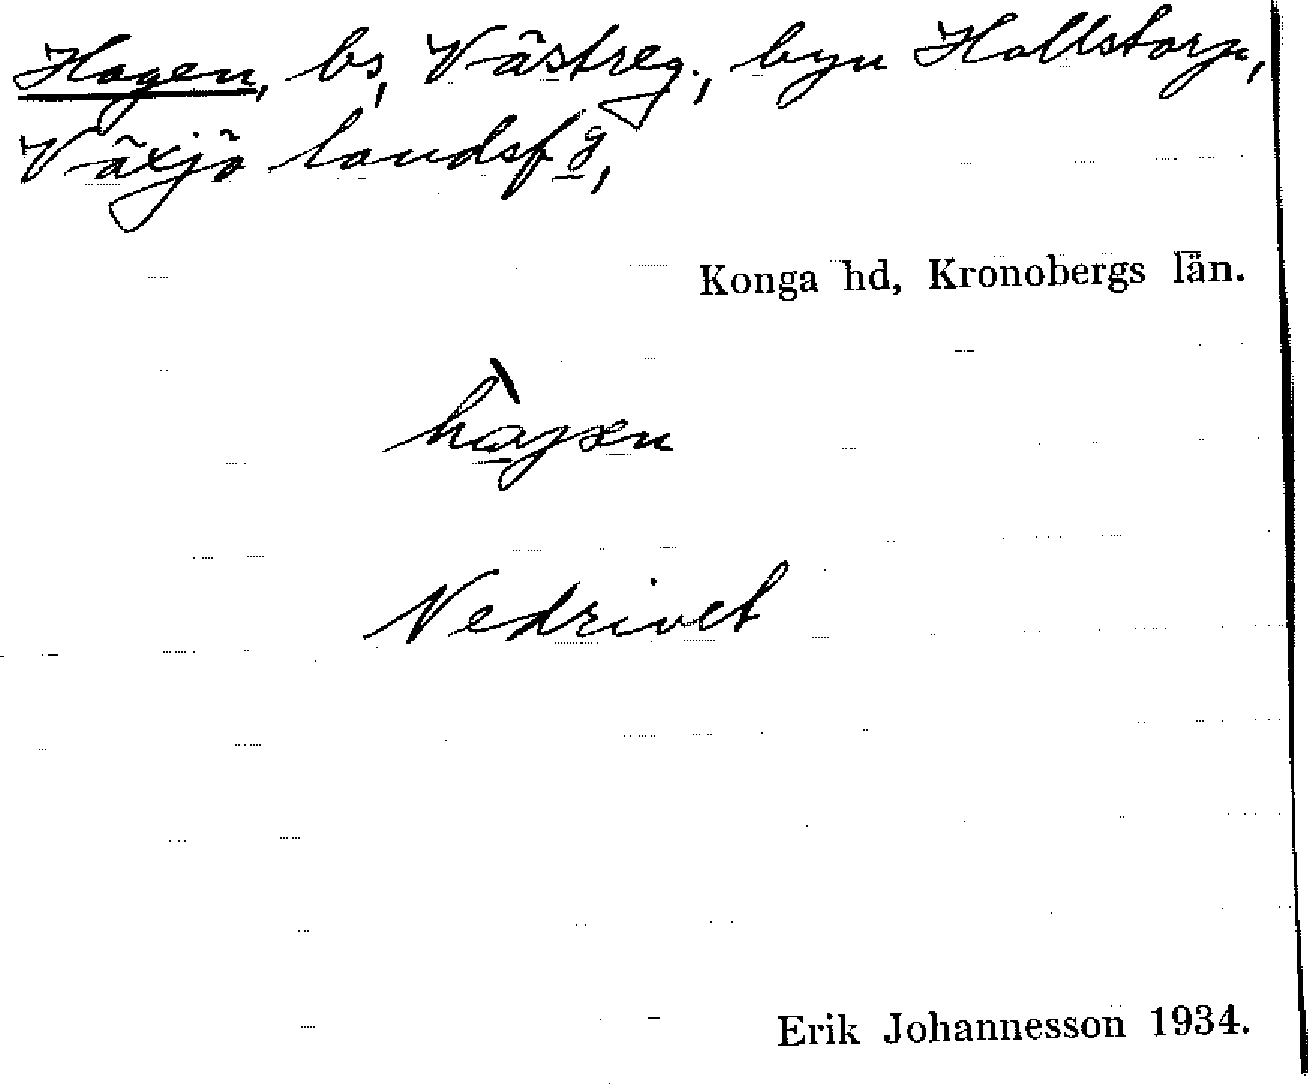 Hagen, bs, Västreg., byn Hollstorp,
Växjö landsfg,
Konga hd, Kronobergs län.
Nedrivet
Erik Johannesson 1934.